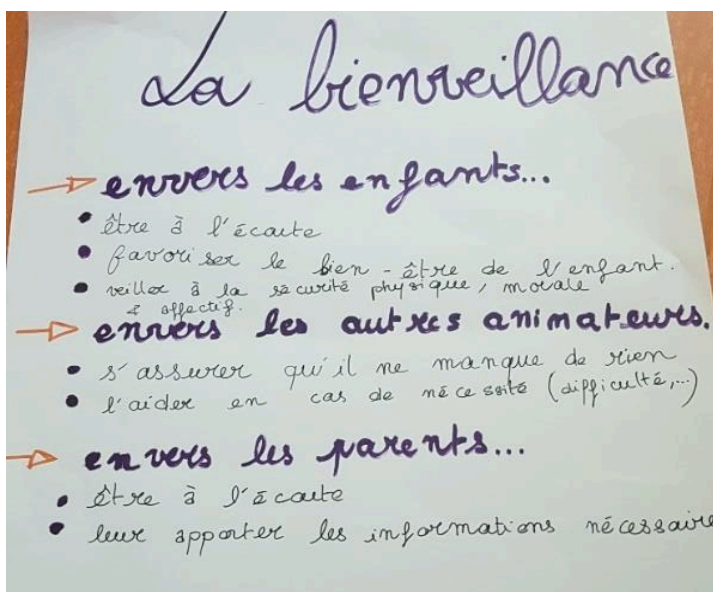 La bienveillance
→ envers les enfants...
• être à l'écoute
• favoriser le bien-être de l'enfant.
• veiller à la sécurité physique, morale
& affectif.
→ envers les autres animateurs.
• s'assurer qu'il ne manque de rien
• l'aider en cas de nécessité (difficulté,...)
→ envers les parents...
• être à l'écoute
• leur apporter les informations nécessaire